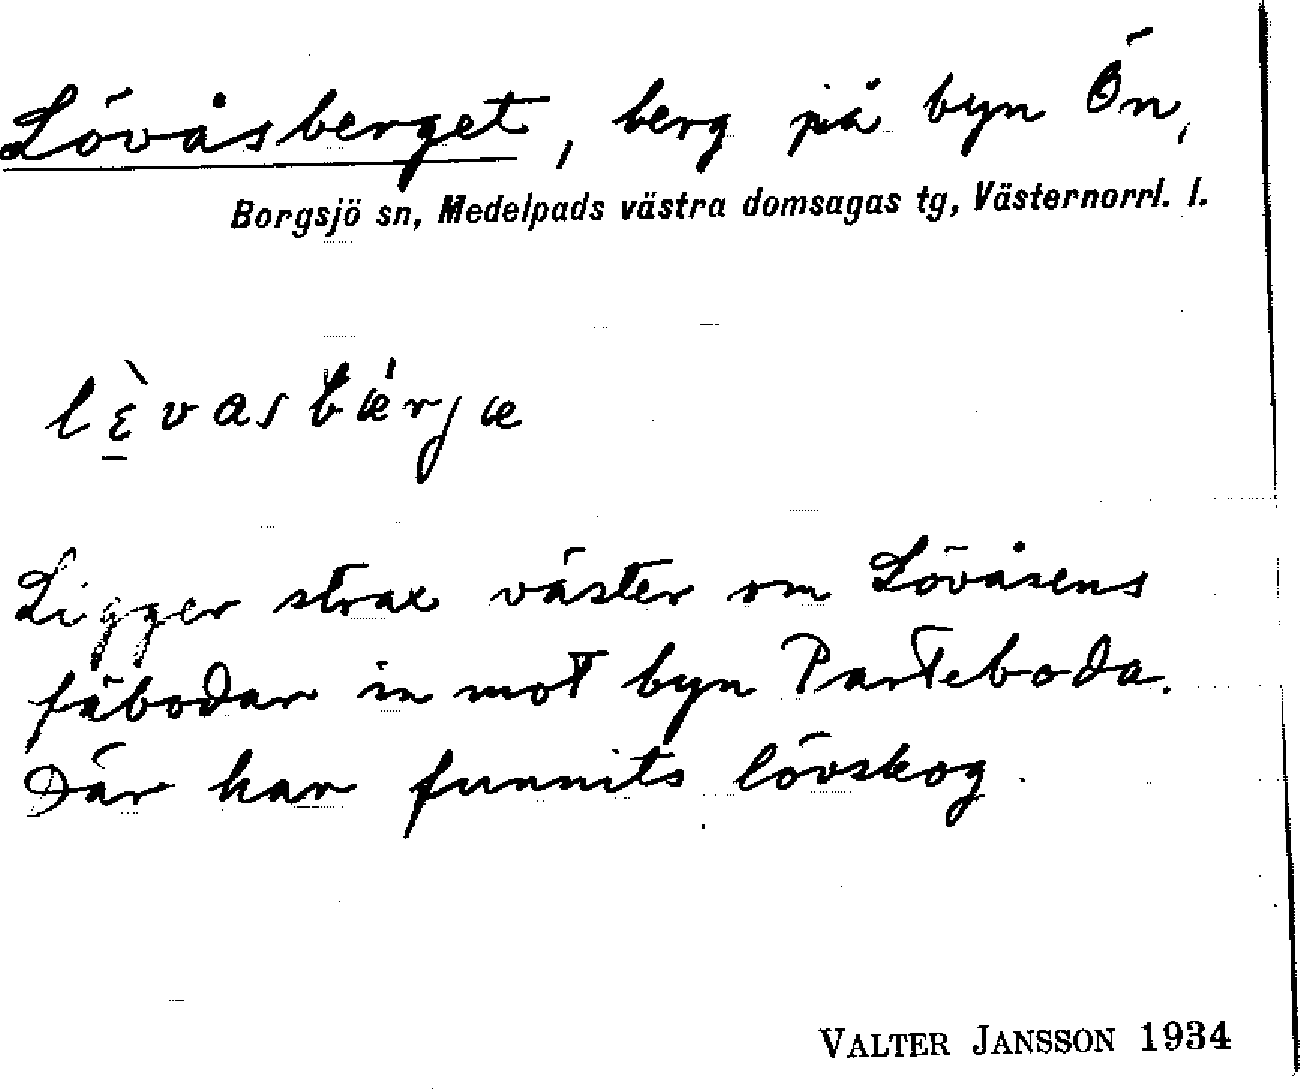 Lövåsberget, berg på byn Ön,
Borgsjö sn, Medelpads västra domsagas tg, Västernorrl. l.
lɛ̠̀vasbǽrjæ
Ligger strax väster om Lövåsens
fäbodar in mot byn Parteboda.
Där har funnits lövskog.
VALTER JANSSON 1934